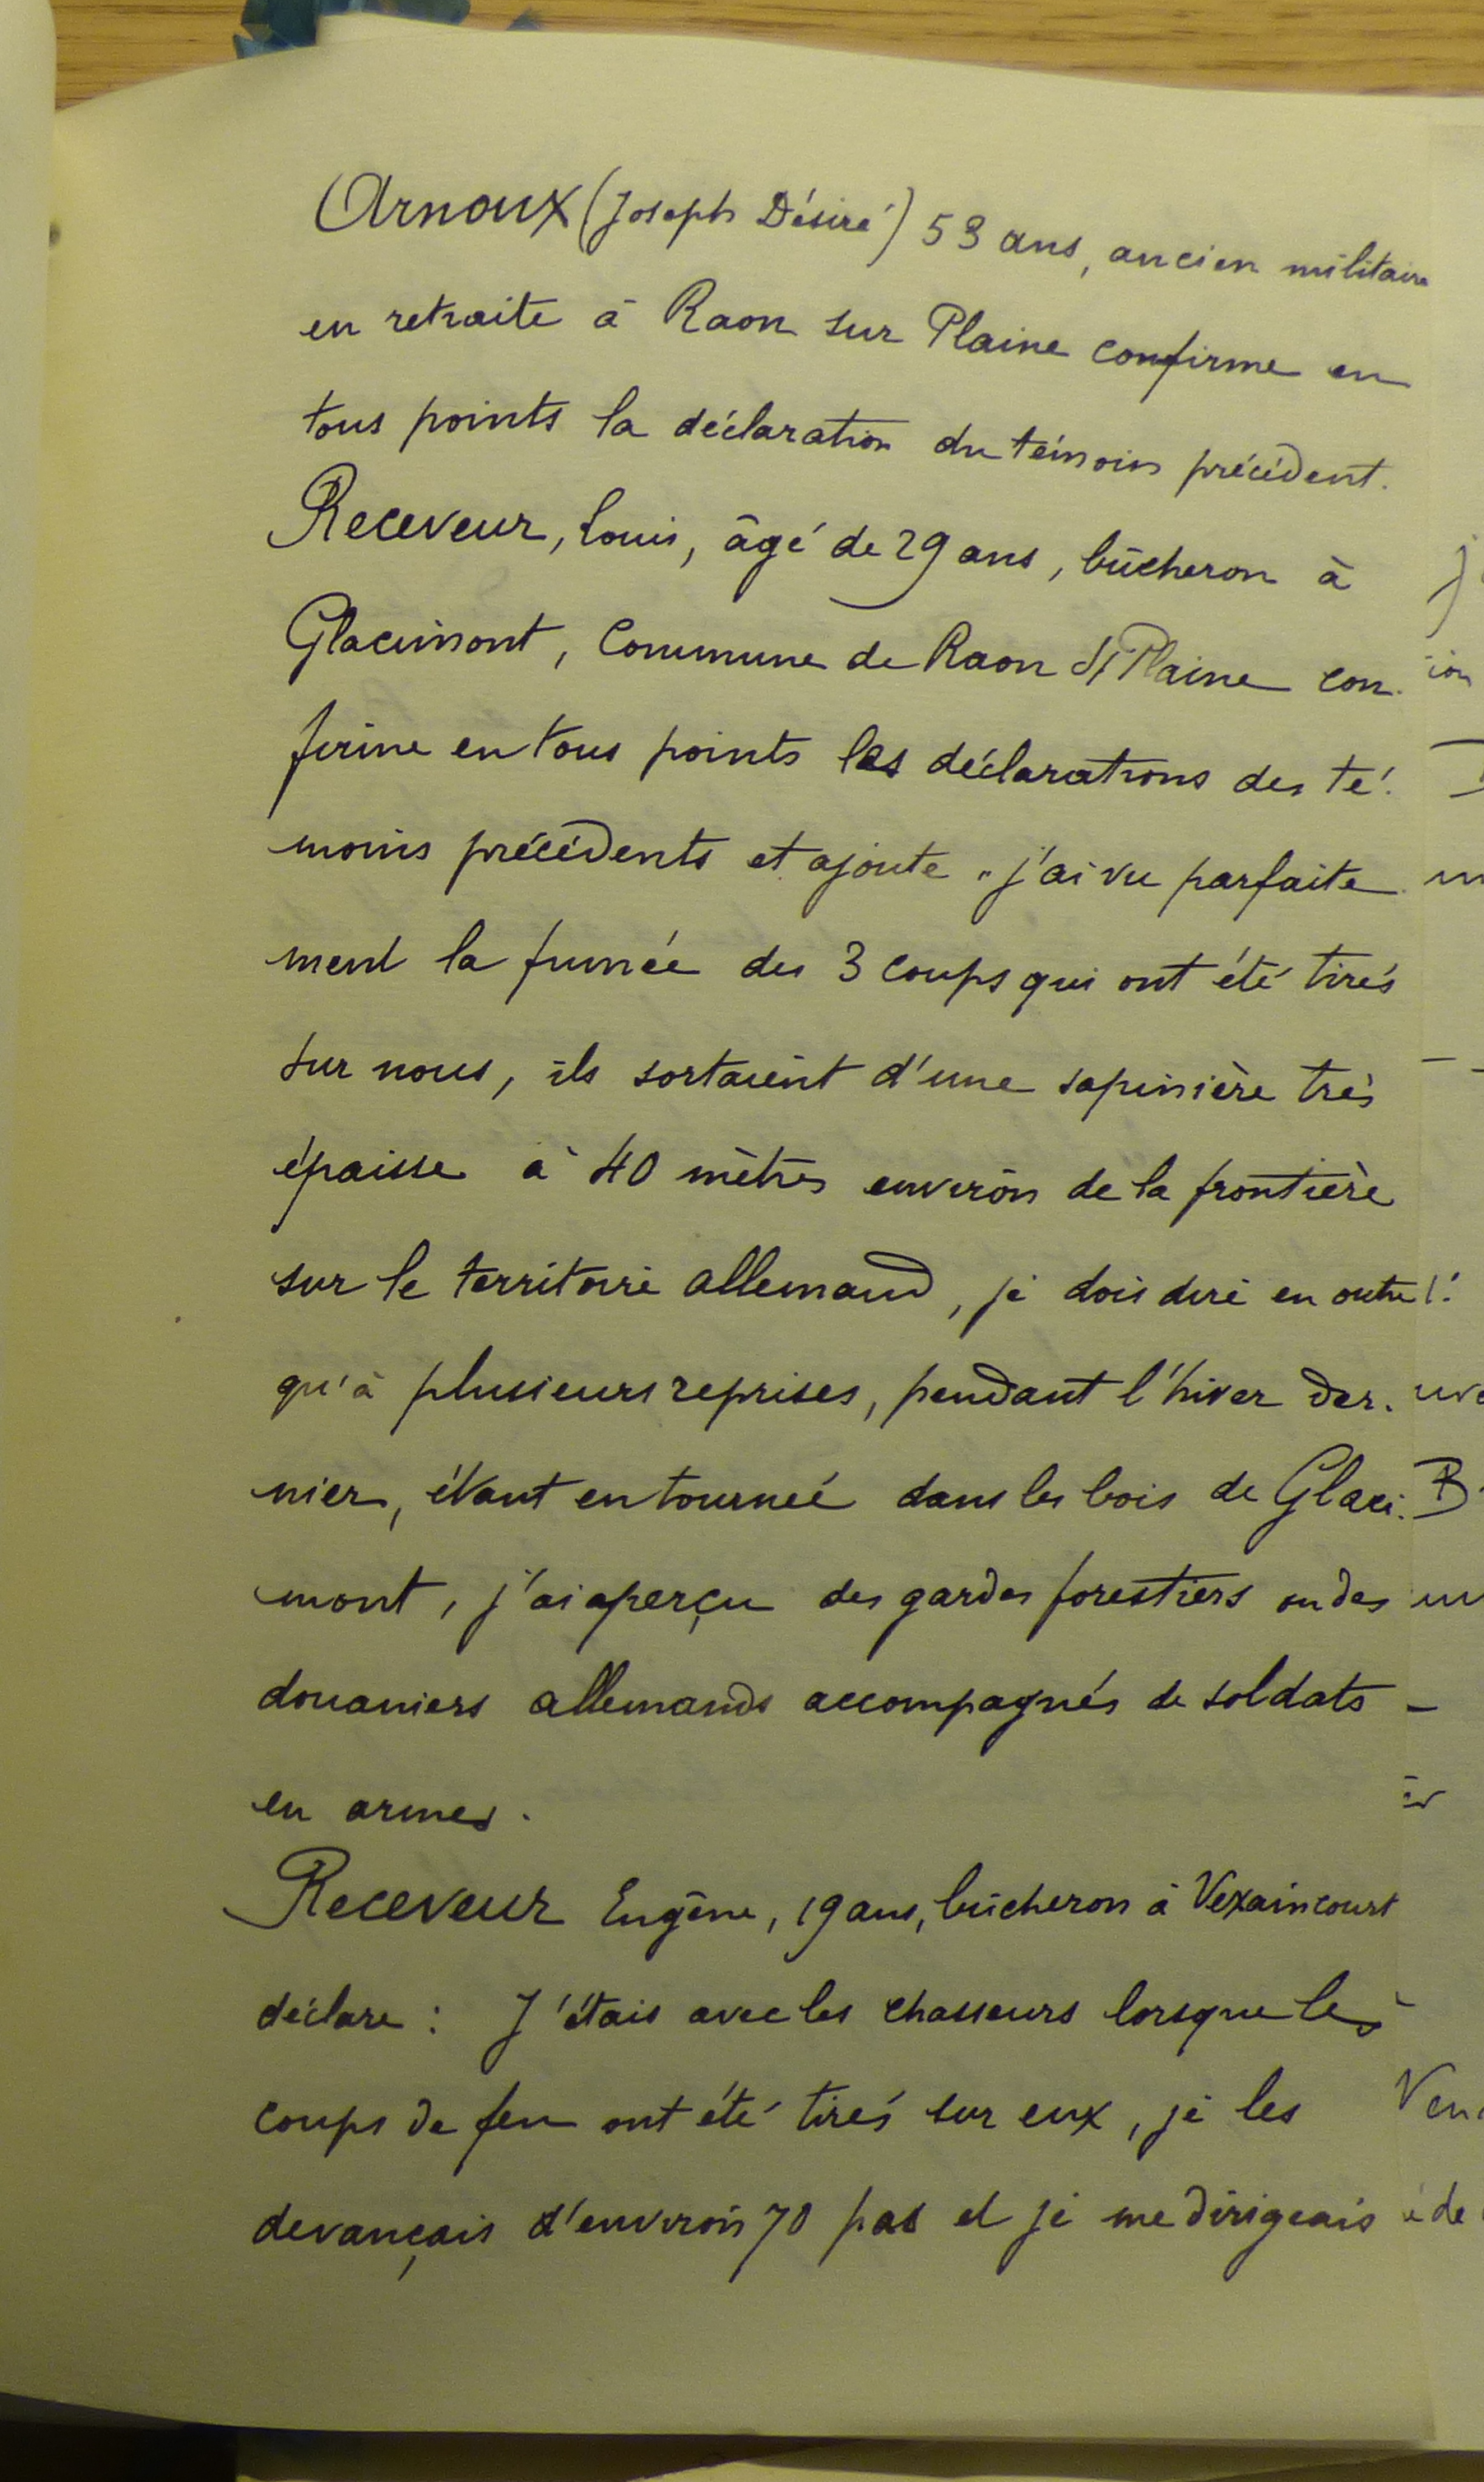 Arnoux (Joseph Désiré) 53 ans, ancien militaire
en retraite à Raon sur Plaine confirme en
tous points la déclaration du témoin précédent.
Receveur, Louis, âgé de 29 ans, bûcheron à
Glacimont, Commune de Raon s/ Plaine con-
firme en tous points les déclarations des té-
moins précédents et ajoute "j'ai vu parfaite
ment la fumée des 3 coups qui ont été tirés
sur nous, ils sortaient d'une sapinière très
épaisse à 40 mètres environ de la frontière
sur le territoire allemand, je dois dire en outre
qu'à plusieurs reprises, pendant l'hiver der-
nier, étant en tournée dans les bois de Glaci-
mont, j'ai aperçu des gardes forestiers ou des
douaniers allemands accompagnés de soldats
en armes.
Receveur Eugène, 19 ans, bûcheron à Vexaincourt
déclare : J'étais avec les chasseurs lorsque les
coups de feu ont été tirés sur eux, je les
devançais d'environ 70 pas et je me dirigeais